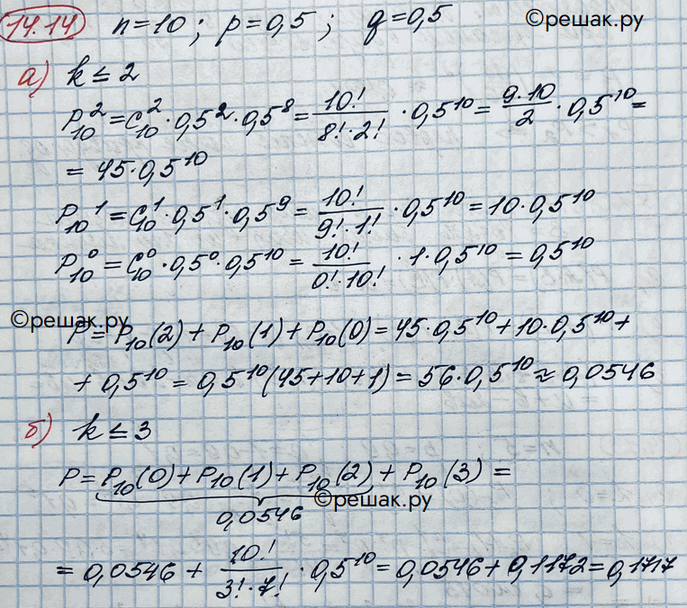 14.14 n=10; p=0,5; q=0,5 ©решак.ру
а) k≤2
P₁₀²=C₁₀²·0,5²·0,5⁸=10!/(8!·2!)·0,5¹⁰=(9·10)/2·0,5¹⁰=
=45·0,5¹⁰
P₁₀¹=C₁₀¹·0,5¹·0,5⁹=10!/(9!·1!)·0,5¹⁰=10·0,5¹⁰
P₁₀⁰=C₁₀⁰·0,5⁰·0,5¹⁰=10!/(0!·10!)·1·0,5¹⁰=0,5¹⁰
©решак.ру
P=P₁₀(2)+P₁₀(1)+P₁₀(0)=45·0,5¹⁰+10·0,5¹⁰+
+0,5¹⁰=0,5¹⁰(45+10+1)=56·0,5¹⁰≈0,0546
б) k≤3
P=P₁₀(0)+P₁₀(1)+P₁₀(2)+P₁₀(3)=
©решак.ру
0,0546
=0,0546+10!/(3!·7!)·0,5¹⁰=0,0546+0,1172=0,1717